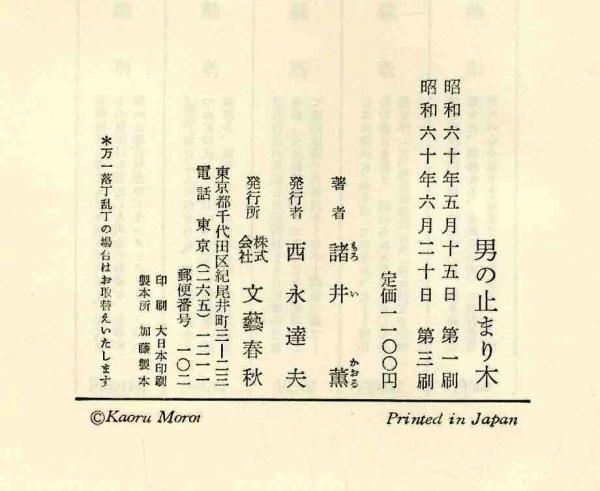 男の止まり木
昭和六十年五月十五日　第一刷
昭和六十年六月二十日　第三刷
定価一一〇〇円
著者　諸井　薫
もろ　い　かおる
発行者　西永達夫
発行所　株式会社　文藝春秋
東京都千代田区紀尾井町三—二三
電話　東京(二六五)一二一一
郵便番号　一〇二
印刷　大日本印刷
製本所　加藤製本
＊万一落丁乱丁の場合はお取替えいたします
©Kaoru Moroi
Printed in Japan